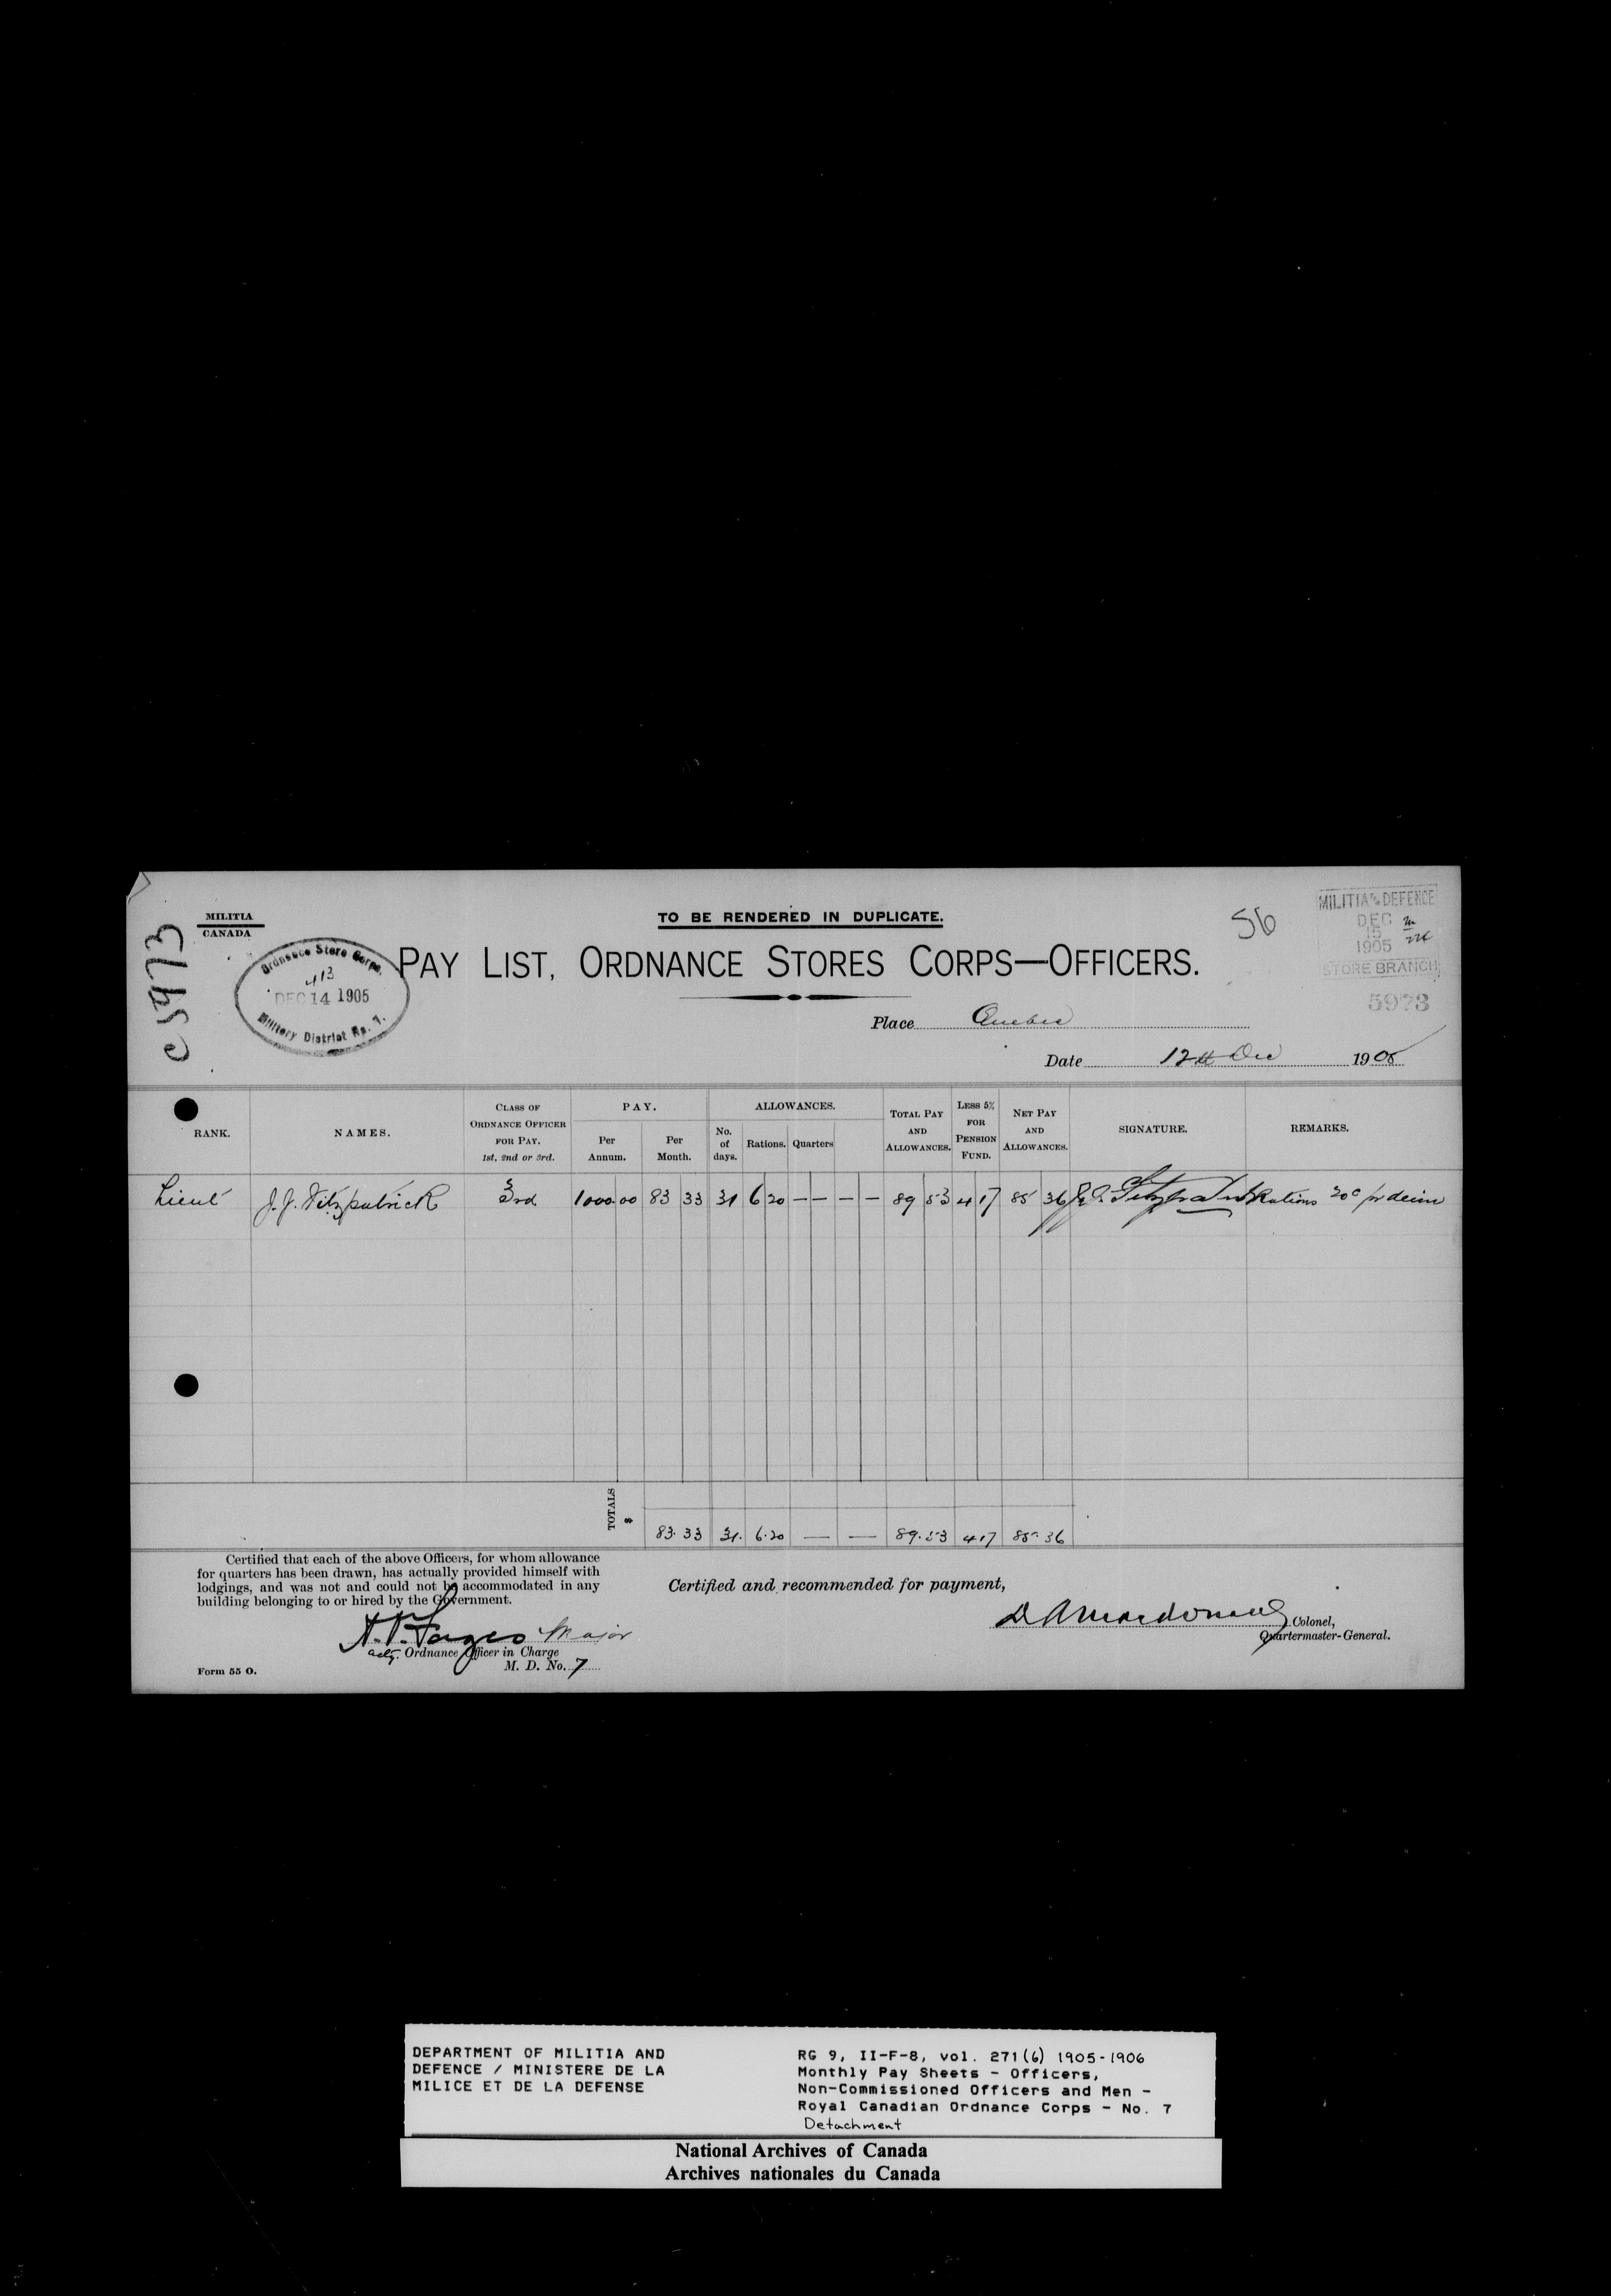 C5973
MILITIA
CANADA
Ordnance Store Corps.
413
DEC 14 1905
Military District No. 7.
TO BE RENDERED IN DUPLICATE.
56
MILITIA & DEFENCE
DEC
15
1905
STORE BRANCH
5973
PAY LIST, ORDNANCE STORES CORPS—OFFICERS.
Place Quebec
Date 12th Dec 1905
RANK. NAMES. CLASS OF ORDNANCE OFFICER FOR PAY. 1st, 2nd or 3rd. PAY. Per Annum. Per Month. ALLOWANCES. No. of days. Rations. Quarters TOTAL PAY AND ALLOWANCES. LESS 5% FOR PENSION FUND. NET PAY AND ALLOWANCES. SIGNATURE. REMARKS.
Lieut J. J. Fitzpatrick 3rd 1000.00 83 33 31 6 20 — — — — 89 53 4 17 85 36 J. J. Fitzpatrick Rations 20c pr deim
TOTALS $ 83.33 31. 6.20 — — 89.53 4.17 85.36
Certified that each of the above Officers, for whom allowance
for quarters has been drawn, has actually provided himself with
lodgings, and was not and could not be accommodated in any
building belonging to or hired by the Government.
Certified and recommended for payment,
Major
actg. Ordnance Officer in Charge
M. D. No. 7
D A Macdonald Colonel,
Quartermaster-General.
Form 55 O.
DEPARTMENT OF MILITIA AND
DEFENCE / MINISTERE DE LA
MILICE ET DE LA DEFENSE
RG 9, II-F-8, vol. 271(6) 1905-1906
Monthly Pay Sheets - Officers,
Non-Commissioned Officers and Men -
Royal Canadian Ordnance Corps - No. 7
Detachment
National Archives of Canada
Archives nationales du Canada